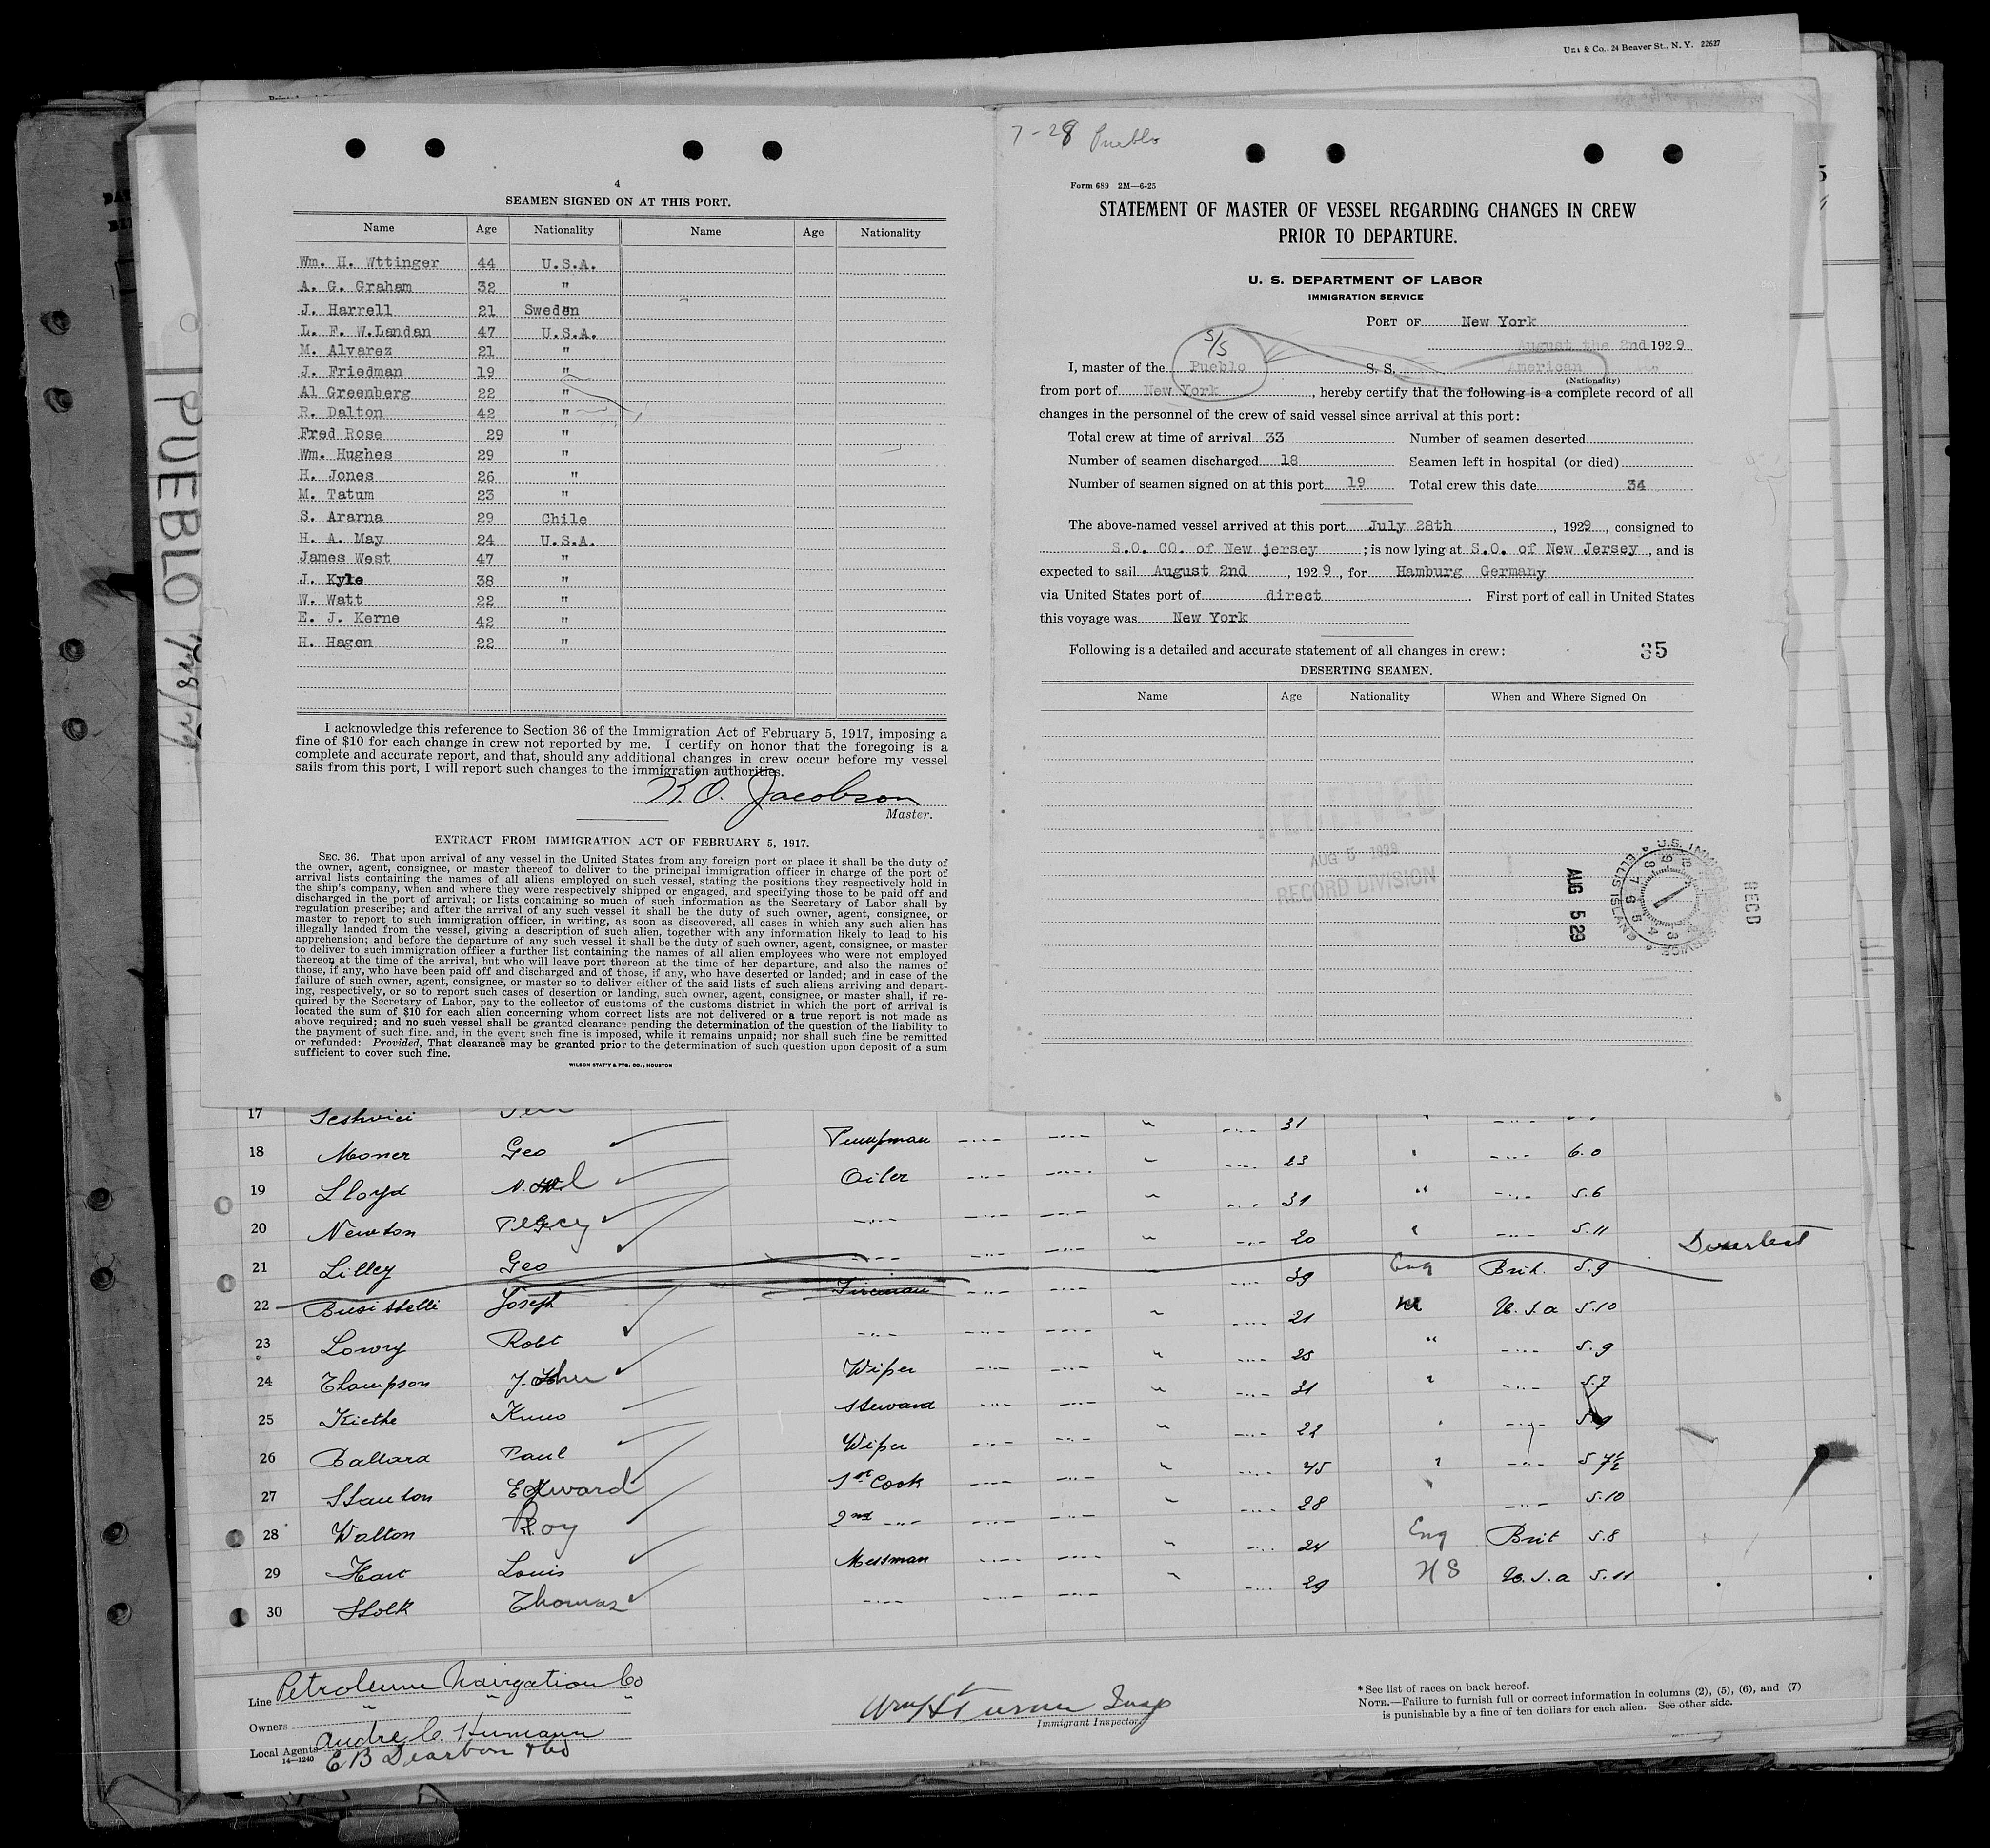 Co., 24 Beaver St., N. Y. 22627
PUEBLO
4
SEAMEN SIGNED ON AT THIS PORT.
Name Age Nationality Name Age Nationality
Wm. H. Wttinger 44 U.S.A.
A. G. Graham 32 "
J. Harrell 21 Sweden
L. F. W.Landan 47 U.S.A.
M. Alvarez 21 "
J. Friedman 19 "
Al Greenberg 22 "
R. Dalton 42 "
Fred Rose 29 "
Wm. Hughes 29 "
H. Jones 26 "
M. Tatum 23 "
S. Ararna 29 Chile
H. A. May 24 U.S.A.
James West 47 "
J. Kyle 38 "
W. Watt 22 "
E. J. Kerne 42 "
H. Hagen 22 "
I acknowledge this reference to Section 36 of the Immigration Act of February 5, 1917, imposing a
fine of $10 for each change in crew not reported by me. I certify on honor that the foregoing is a
complete and accurate report, and that, should any additional changes in crew occur before my vessel
sails from this port, I will report such changes to the immigration authorities.
K. O. Jacobson
Master.
EXTRACT FROM IMMIGRATION ACT OF FEBRUARY 5, 1917.
SEC. 36. That upon arrival of any vessel in the United States from any foreign port or place it shall be the duty of
the owner, agent, consignee, or master thereof to deliver to the principal immigration officer in charge of the port of
arrival lists containing the names of all aliens employed on such vessel, stating the positions they respectively hold in
the ship's company, when and where they were respectively shipped or engaged, and specifying those to be paid off and
discharged in the port of arrival; or lists containing so much of such information as the Secretary of Labor shall by
regulation prescribe; and after the arrival of any such vessel it shall be the duty of such owner, agent, consignee, or
master to report to such immigration officer, in writing, as soon as discovered, all cases in which any such alien has
illegally landed from the vessel, giving a description of such alien, together with any information likely to lead to his
apprehension; and before the departure of any such vessel it shall be the duty of such owner, agent, consignee, or master
to deliver to such immigration officer a further list containing the names of all alien employees who were not employed
thereon at the time of the arrival, but who will leave port thereon at the time of her departure, and also the names of
those, if any, who have been paid off and discharged and of those, if any, who have deserted or landed; and in case of the
failure of such owner, agent, consignee, or master so to deliver either of the said lists of such aliens arriving and depart-
ing, respectively, or so to report such cases of desertion or landing, such owner, agent, consignee, or master shall, if re-
quired by the Secretary of Labor, pay to the collector of customs of the customs district in which the port of arrival is
located the sum of $10 for each alien concerning whom correct lists are not delivered or a true report is not made as
above required; and no such vessel shall be granted clearance pending the determination of the question of the liability to
the payment of such fine, and, in the event such fine is imposed, while it remains unpaid; nor shall such fine be remitted
or refunded: Provided, That clearance may be granted prior to the determination of such question upon deposit of a sum
sufficient to cover such fine.
WILSON STAT'Y & PTG. CO., HOUSTON
7-28 Pueblo
Form 689 2M—6-25
STATEMENT OF MASTER OF VESSEL REGARDING CHANGES IN CREW
PRIOR TO DEPARTURE.
U. S. DEPARTMENT OF LABOR
IMMIGRATION SERVICE
PORT OF New York
August the 2nd 1929
S/S
I, master of the Pueblo S. S. American
(Nationality)
from port of New York, hereby certify that the following is a complete record of all
changes in the personnel of the crew of said vessel since arrival at this port:
Total crew at time of arrival 33 Number of seamen deserted
Number of seamen discharged 18 Seamen left in hospital (or died)
Number of seamen signed on at this port 19 Total crew this date 34
The above-named vessel arrived at this port July 28th, 1929, consigned to
S.O. CO. of New jersey; is now lying at S.O. of New Jersey, and is
expected to sail August 2nd, 1929, for Hamburg Germany
via United States port of direct. First port of call in United States
this voyage was New York
Following is a detailed and accurate statement of all changes in crew: 35
DESERTING SEAMEN.
Name Age Nationality When and Where Signed On
RECEIVED
AUG 5 1929
RECORD DIVISION
AUG 5 29
RECD
17 31
18 Moner Geo Pumpman 23 6.0
19 Lloyd Oiler 31 5.6
20 Newton Percy 20 5.11
21 Lilley Geo 39 Eng Brit. 5.9
22 Joseph Fireman 21 U.S.A 5.10
23 Lowry Robt 25 5.9
24 Thompson Wiper 31 5.7
25 Kiethe Kuno Steward 22
26 Ballard Paul Wiper 45 5 7½
27 Stanton Edward 1st Cook 28 5.10
28 Walton Roy 2nd 24 Eng Brit 5.8
29 Hart Louis Messman 29 U.S.A 5.11
30 Stolk Thomas
Line Petroleum Navigation Co
Owners " "
Local Agents Andre C. Humann
14—1240
E B Dearborn & Co
Wm H Turner Insp
Immigrant Inspector.
*See list of races on back hereof.
NOTE.—Failure to furnish full or correct information in columns (2), (5), (6), and (7)
is punishable by a fine of ten dollars for each alien. See other side.